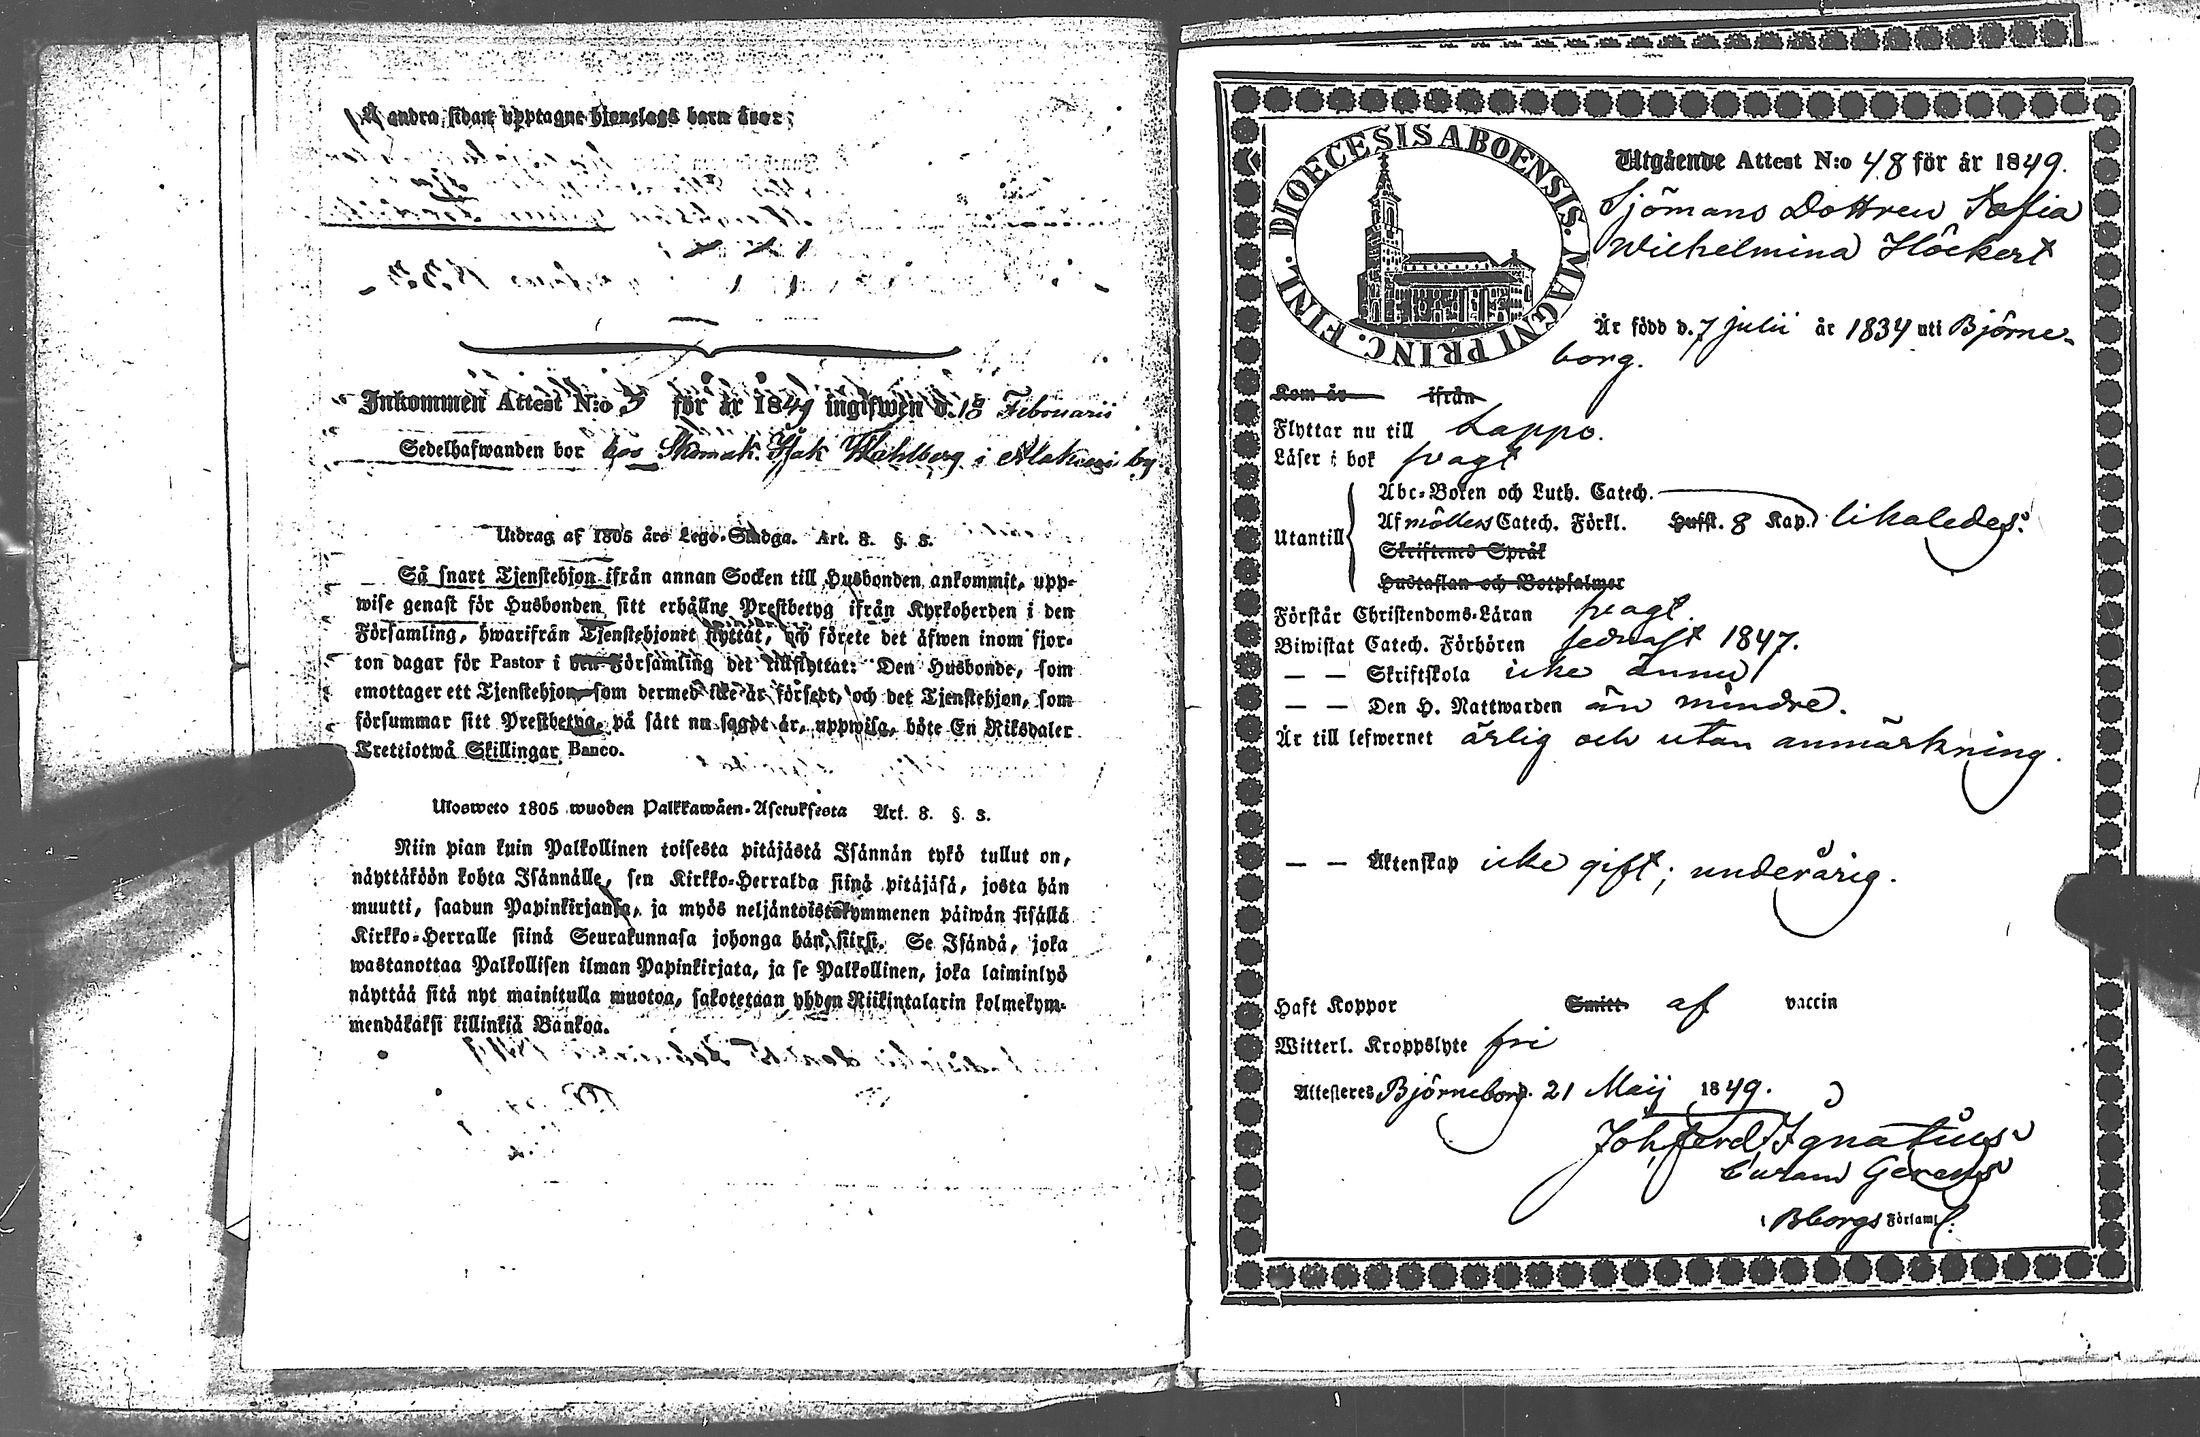 Å andra sidan upptagne hjonelags barn äro:
Inkommen Attest N:o 3 för år 1849 ingifwen d. 18 Februarii
Sedelhafwanden bor hos Skomak. Isak Wahlberg i by
Utdrag af 1805 års Lego-Stadga. Art. 8. §. 3.
Så snart Tjenstehjon ifrån annan Socken till Husbonden ankommit, upp-
wise genast för Husbonden sitt erhållne Prestbetyg ifrån Kyrkoherden i den
Församling, hwarifrån Tjenstehjonet flyttat, och förete det äfwen inom fjor-
ton dagar för Pastor i den Församling det tillflyttat: Den Husbonde, som
emottager ett Tjenstehjon som dermed icke är försedt, och det Tjenstehjon, som
försummar sitt Prestbetyg, på sätt nu sagdt är, uppwisa, böte En Riksdaler
Trettiotwå Skillingar Banco.
Ulosweto 1805 wuoden Palkkawäen-Asetuksesta Art. 8. §. 3.
Niin pian kuin Palkollinen toisesta pitäjästä Isännän tykö tullut on,
näyttäköön kohta Isännälle, sen Kirkko-Herralda siinä pitäjäsä, josta hän
muutti, saadun Papinkirjansa, ja myös neljäntoistakymmenen päiwän sisällä
Kirkko-Herralle siinä Seurakunnasa johonga hän siirsi. Se Isändä, joka
wastanottaa Palkollisen ilman Papinkirjata, ja se Palkollinen, joka laiminlyö
näyttää sitä nyt mainitulla muotoa, sakotetaan yhden Riikintalarin kolmekym-
mendäkaksi killinkiä Bankoa.
DIOECESIS ABOENSIS. MAGNI PRINC. FINL.
Utgående Attest N:o 48 för år 1849.
Sjömans Dottren Sofia
Wilhelmina Höckert
Är född d. 7 Julii år 1834 uti Björne-
borg.
Kom år ifrån
Flyttar nu till Lappo.
Läser i bok swagt
Utantill
Abc-Boken och Luth. Catech.
Af möllers Catech. Förkl. Husst. 8 Kap. likaledes.
Skriftenes Språk
Hustaflan och Botpsalmer
Förstår Christendoms-Läran swagt.
Biwistat Catech. Förhören sednast 1847.
— — Skriftskola icke ännu
— — Den H. Nattwarden än mindre.
Är till lefwernet ärlig och utan anmärkning.
— — Äktenskap icke gift; underårig.
Haft Koppor Smitt af vaccin
Witterl. Kroppslyte fri
Attesteres Björneborg. 21 Maij 1849.
Joh. Ferd. Ignatius
Curam Gerens
i Bborgs Förs﻿aml.